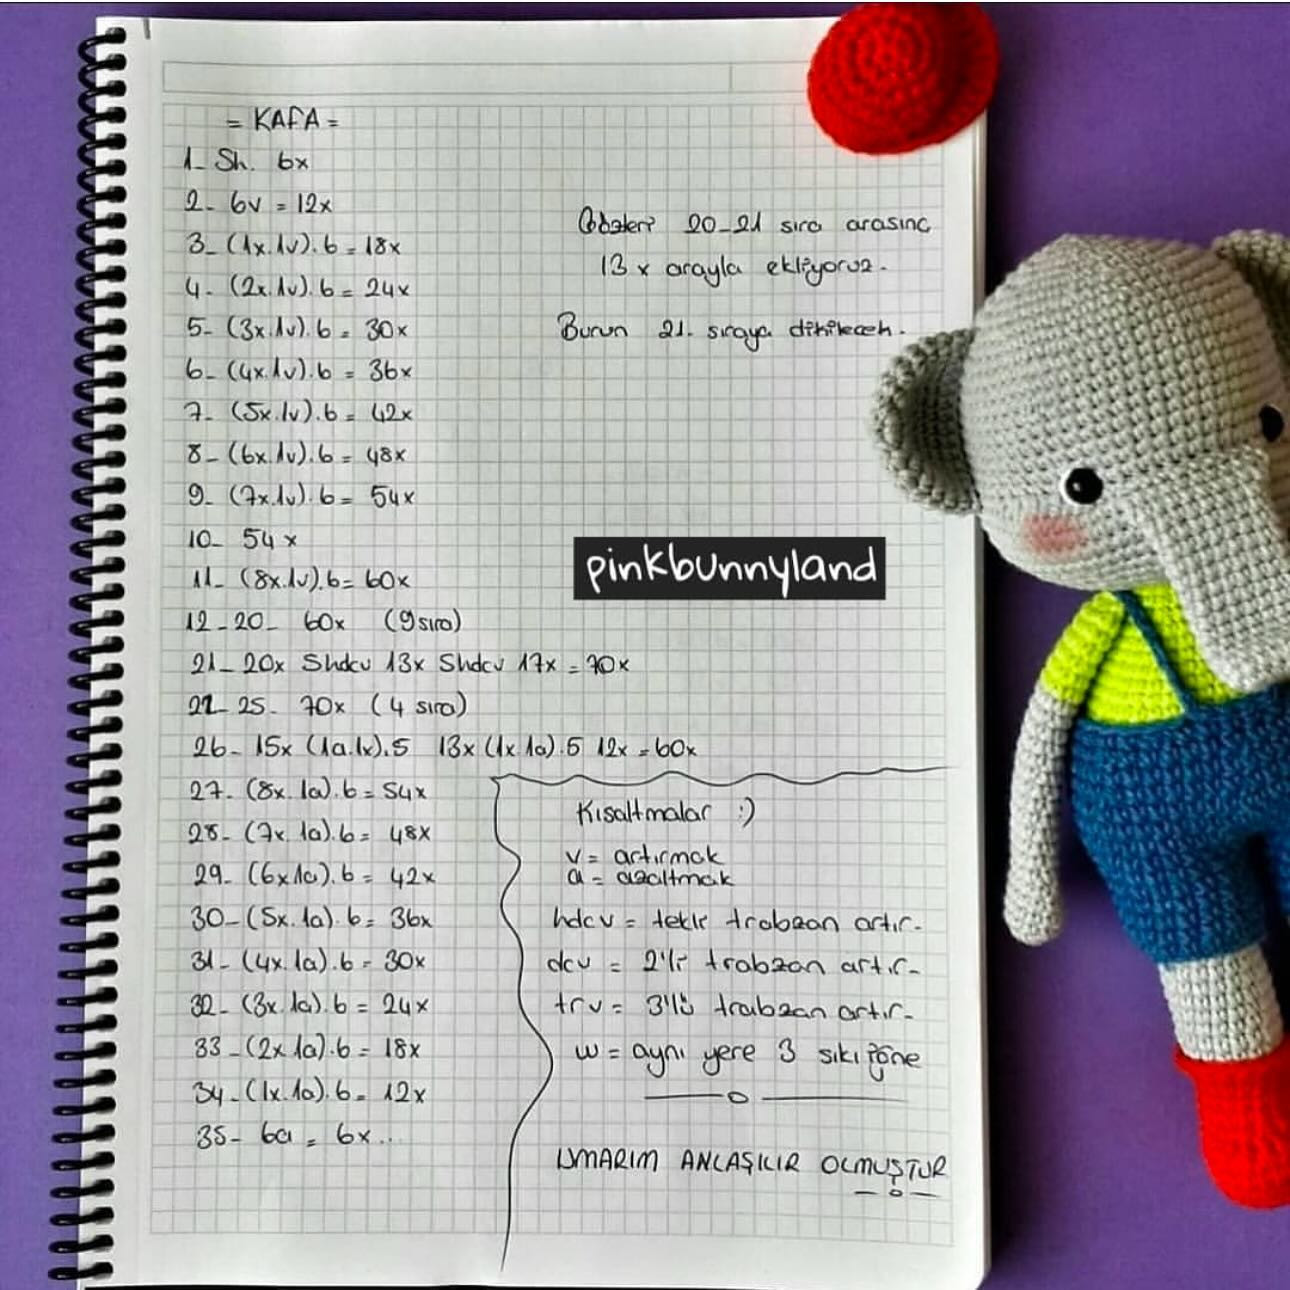 = KAFA =
1- Sh. 6x
2- 6v = 12x
3- (1x.1v).6 = 18x
4- (2x.1v).6 = 24x
5- (3x.1v).6 = 30x
6- (4x.1v).6 = 36x
7- (5x.1v).6 = 42x
8- (6x.1v).6 = 48x
9- (7x.1v).6 = 54x
10- 54x
11- (8x.1v).6= 60x
12-20- 60x (9 sıra)
21- 20x 5hdcv 13x 5hdcv 17x = 70x
22-25- 70x (4 sıra)
26- 15x (1a.1x).5 13x (1x.1a).5 12x = 60x
27- (8x.1a).6 = 54x
28- (7x.1a).6 = 48x
29- (6x1a).6 = 42x
30- (5x.1a).6 = 36x
31- (4x.1a).6 = 30x
32- (3x.1a).6 = 24x
33- (2x.1a).6 = 18x
34- (1x.1a).6 = 12x
35- 6a = 6x...
Gözleri 20-21 sıra arasına
13x arayla ekliyoruz.
Burun 21. sıraya dikilecek.
pinkbunnyland
Kısaltmalar :)
v = artırmak
a = azaltmak
hdcv = tekli trabzan artır-
dcv = 2'li trabzan artır-
trv = 3'lü trabzan artır-
w = aynı yere 3 sık iğne
UMARIM ANLAŞILIR OLMUŞTUR